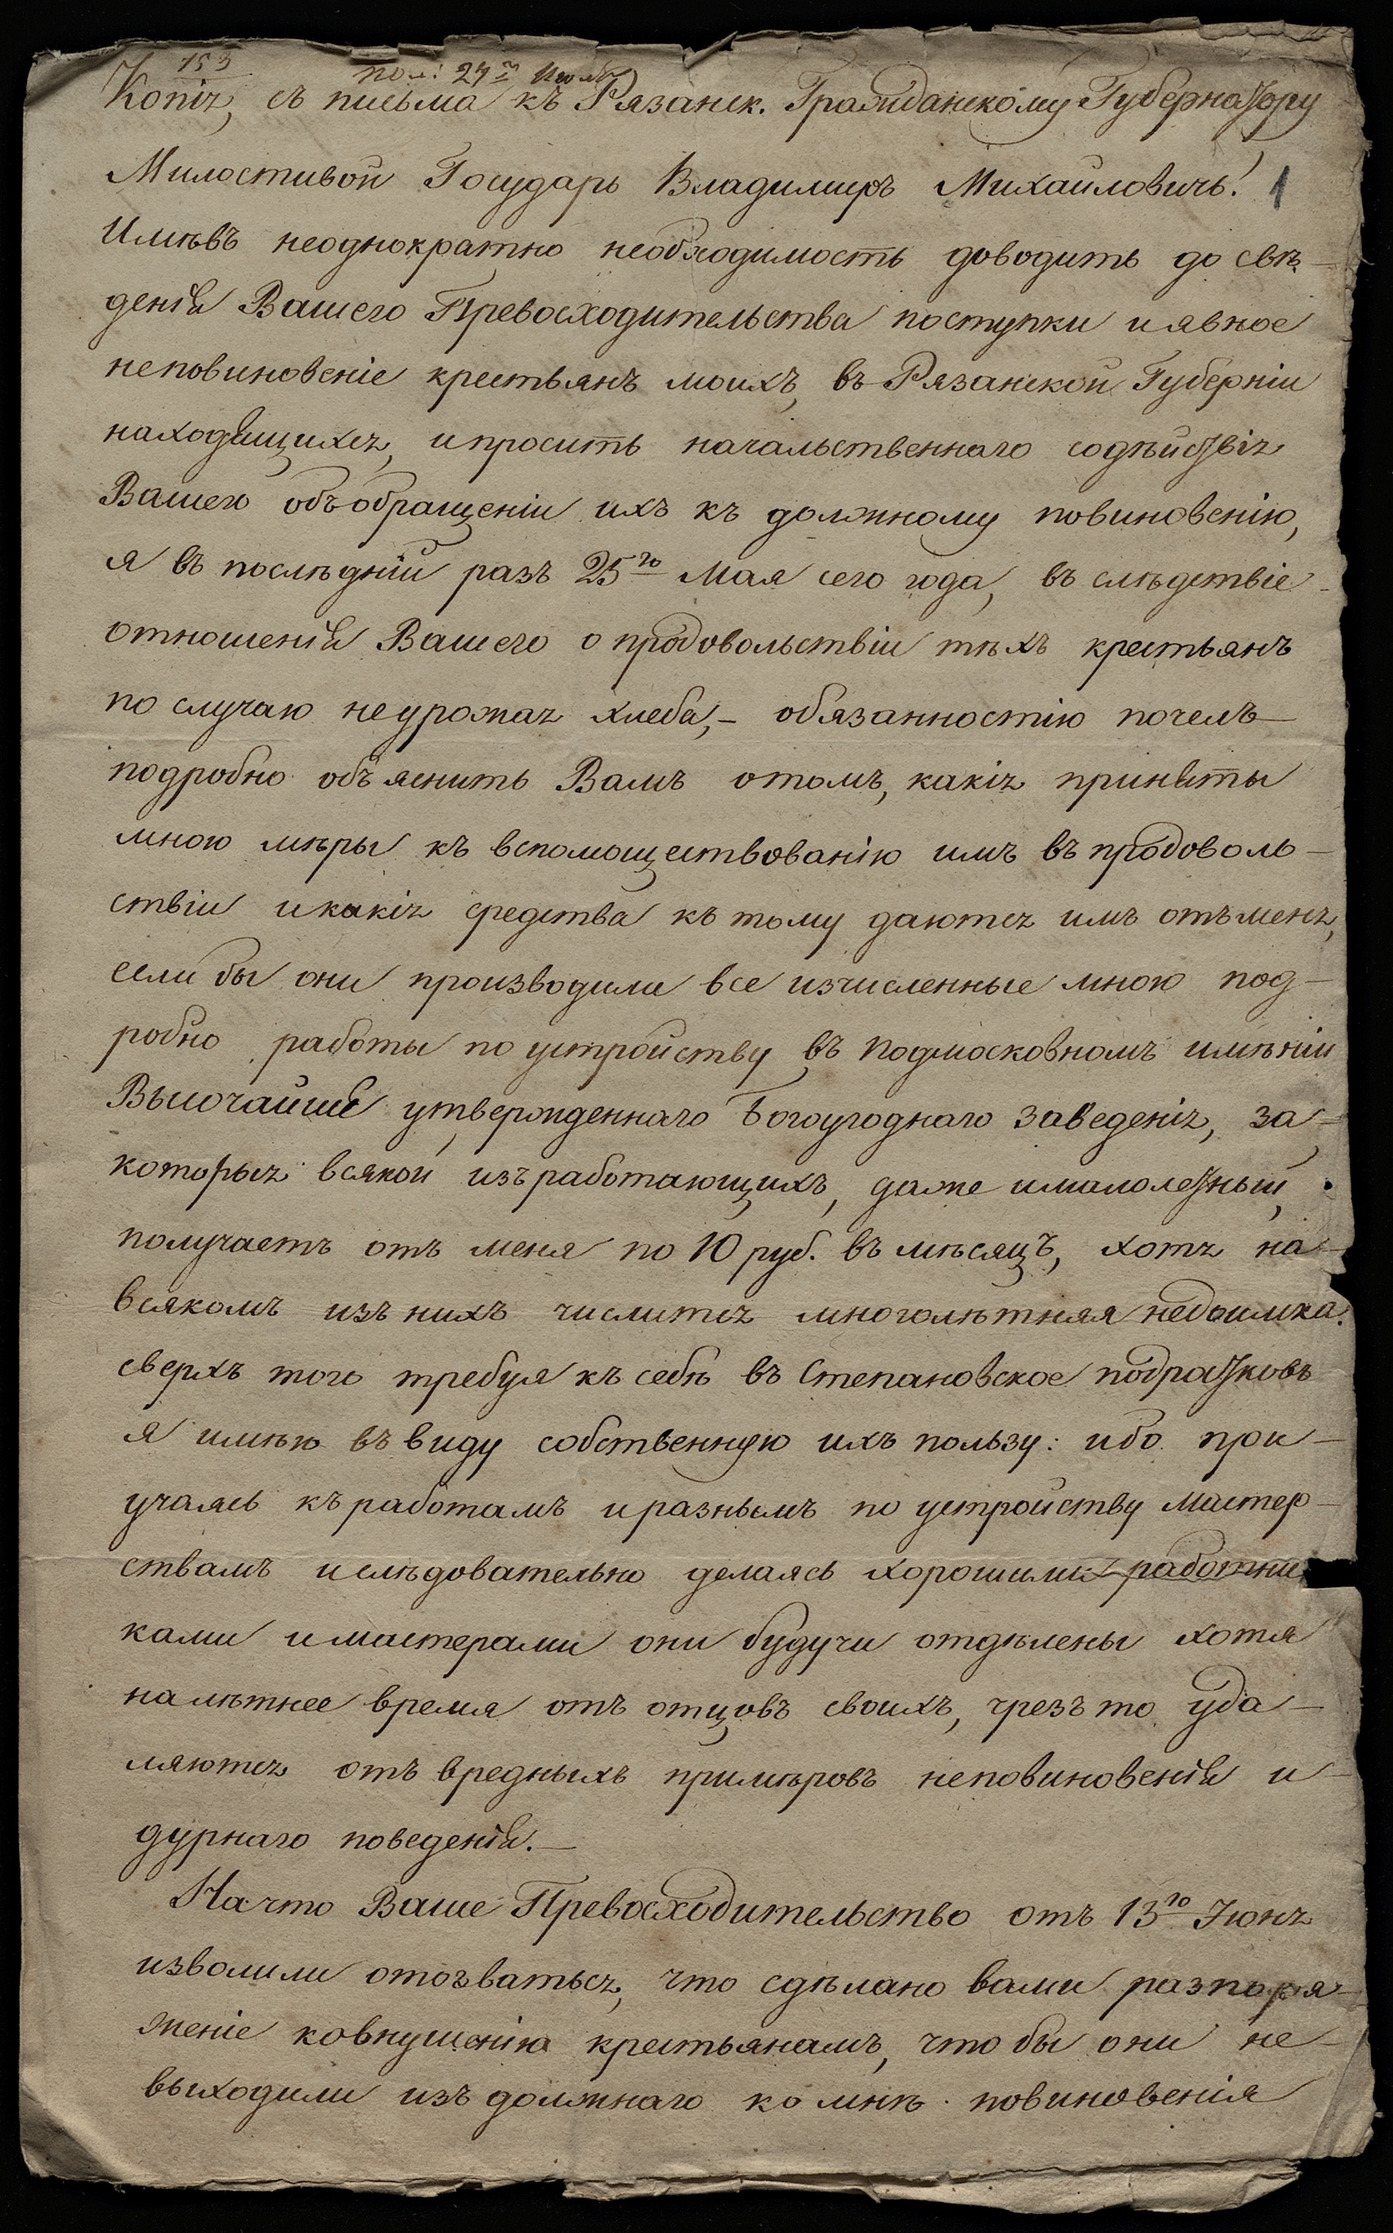 153
пол: 27го Июля
Копія, съ письма къ Рязанск. Гражданскому Губернатору
Милостивой Государь Владимиръ Михайловичь! 1
Имѣвъ неоднократно необходимость доводить до свѣ-
денія Вашего Превосходительства поступки и явное
неповиновеніе крестьянъ моихъ, въ Рязанской Губерніи
находящихся, и просить начальственнаго содѣйствія
Вашего объ обращеніи ихъ къ должному повиновенію,
я въ послѣдній разъ 25го Мая сего года, въ слѣдствіе
отношенія Вашего о продовольствіи тѣхъ крестьянъ
по случаю неурожая хлеба,- обязанностію почелъ
подробно объяснить Вамъ о томъ, какія приняты
мною мѣры къ вспомоществованію имъ въ продоволь-
ствіи и какія средства къ тому даются имъ отъ меня,
если бы они производили все изчисленные мною под-
робно работы по устройству въ подмосковномъ имѣніи
Высочайше утвержденнаго Богоугоднаго заведенія, за
которыя всякой изъ работающихъ, даже и малолетный,
получаетъ отъ меня по 10 руб. въ мѣсяцъ, хотя на
всякомъ изъ нихъ числится многолѣтняя недоимка.
сверхъ того требуя къ себѣ въ Степановское подратковъ
я имѣю въ виду собственную ихъ пользу: ибо при-
учаясь къ работамъ и разнымъ по устройству мастер-
ствамъ и слѣдовательно делаясь хорошими работни-
ками и мастерами они будучи отдѣлены хотя
на лѣтнее время отъ отцовъ своихъ, чрезъ то уда-
ляются отъ вредныхъ примѣровъ неповиновенія и
дурнаго поведенія.-
На что Ваше Превосходительство отъ 13го Іюня
изволили отозваться, что сдѣлано вами разпоря-
женіе ко внушенію крестьянамъ, что бы они не
выходили изъ должнаго ко мнѣ повиновенія